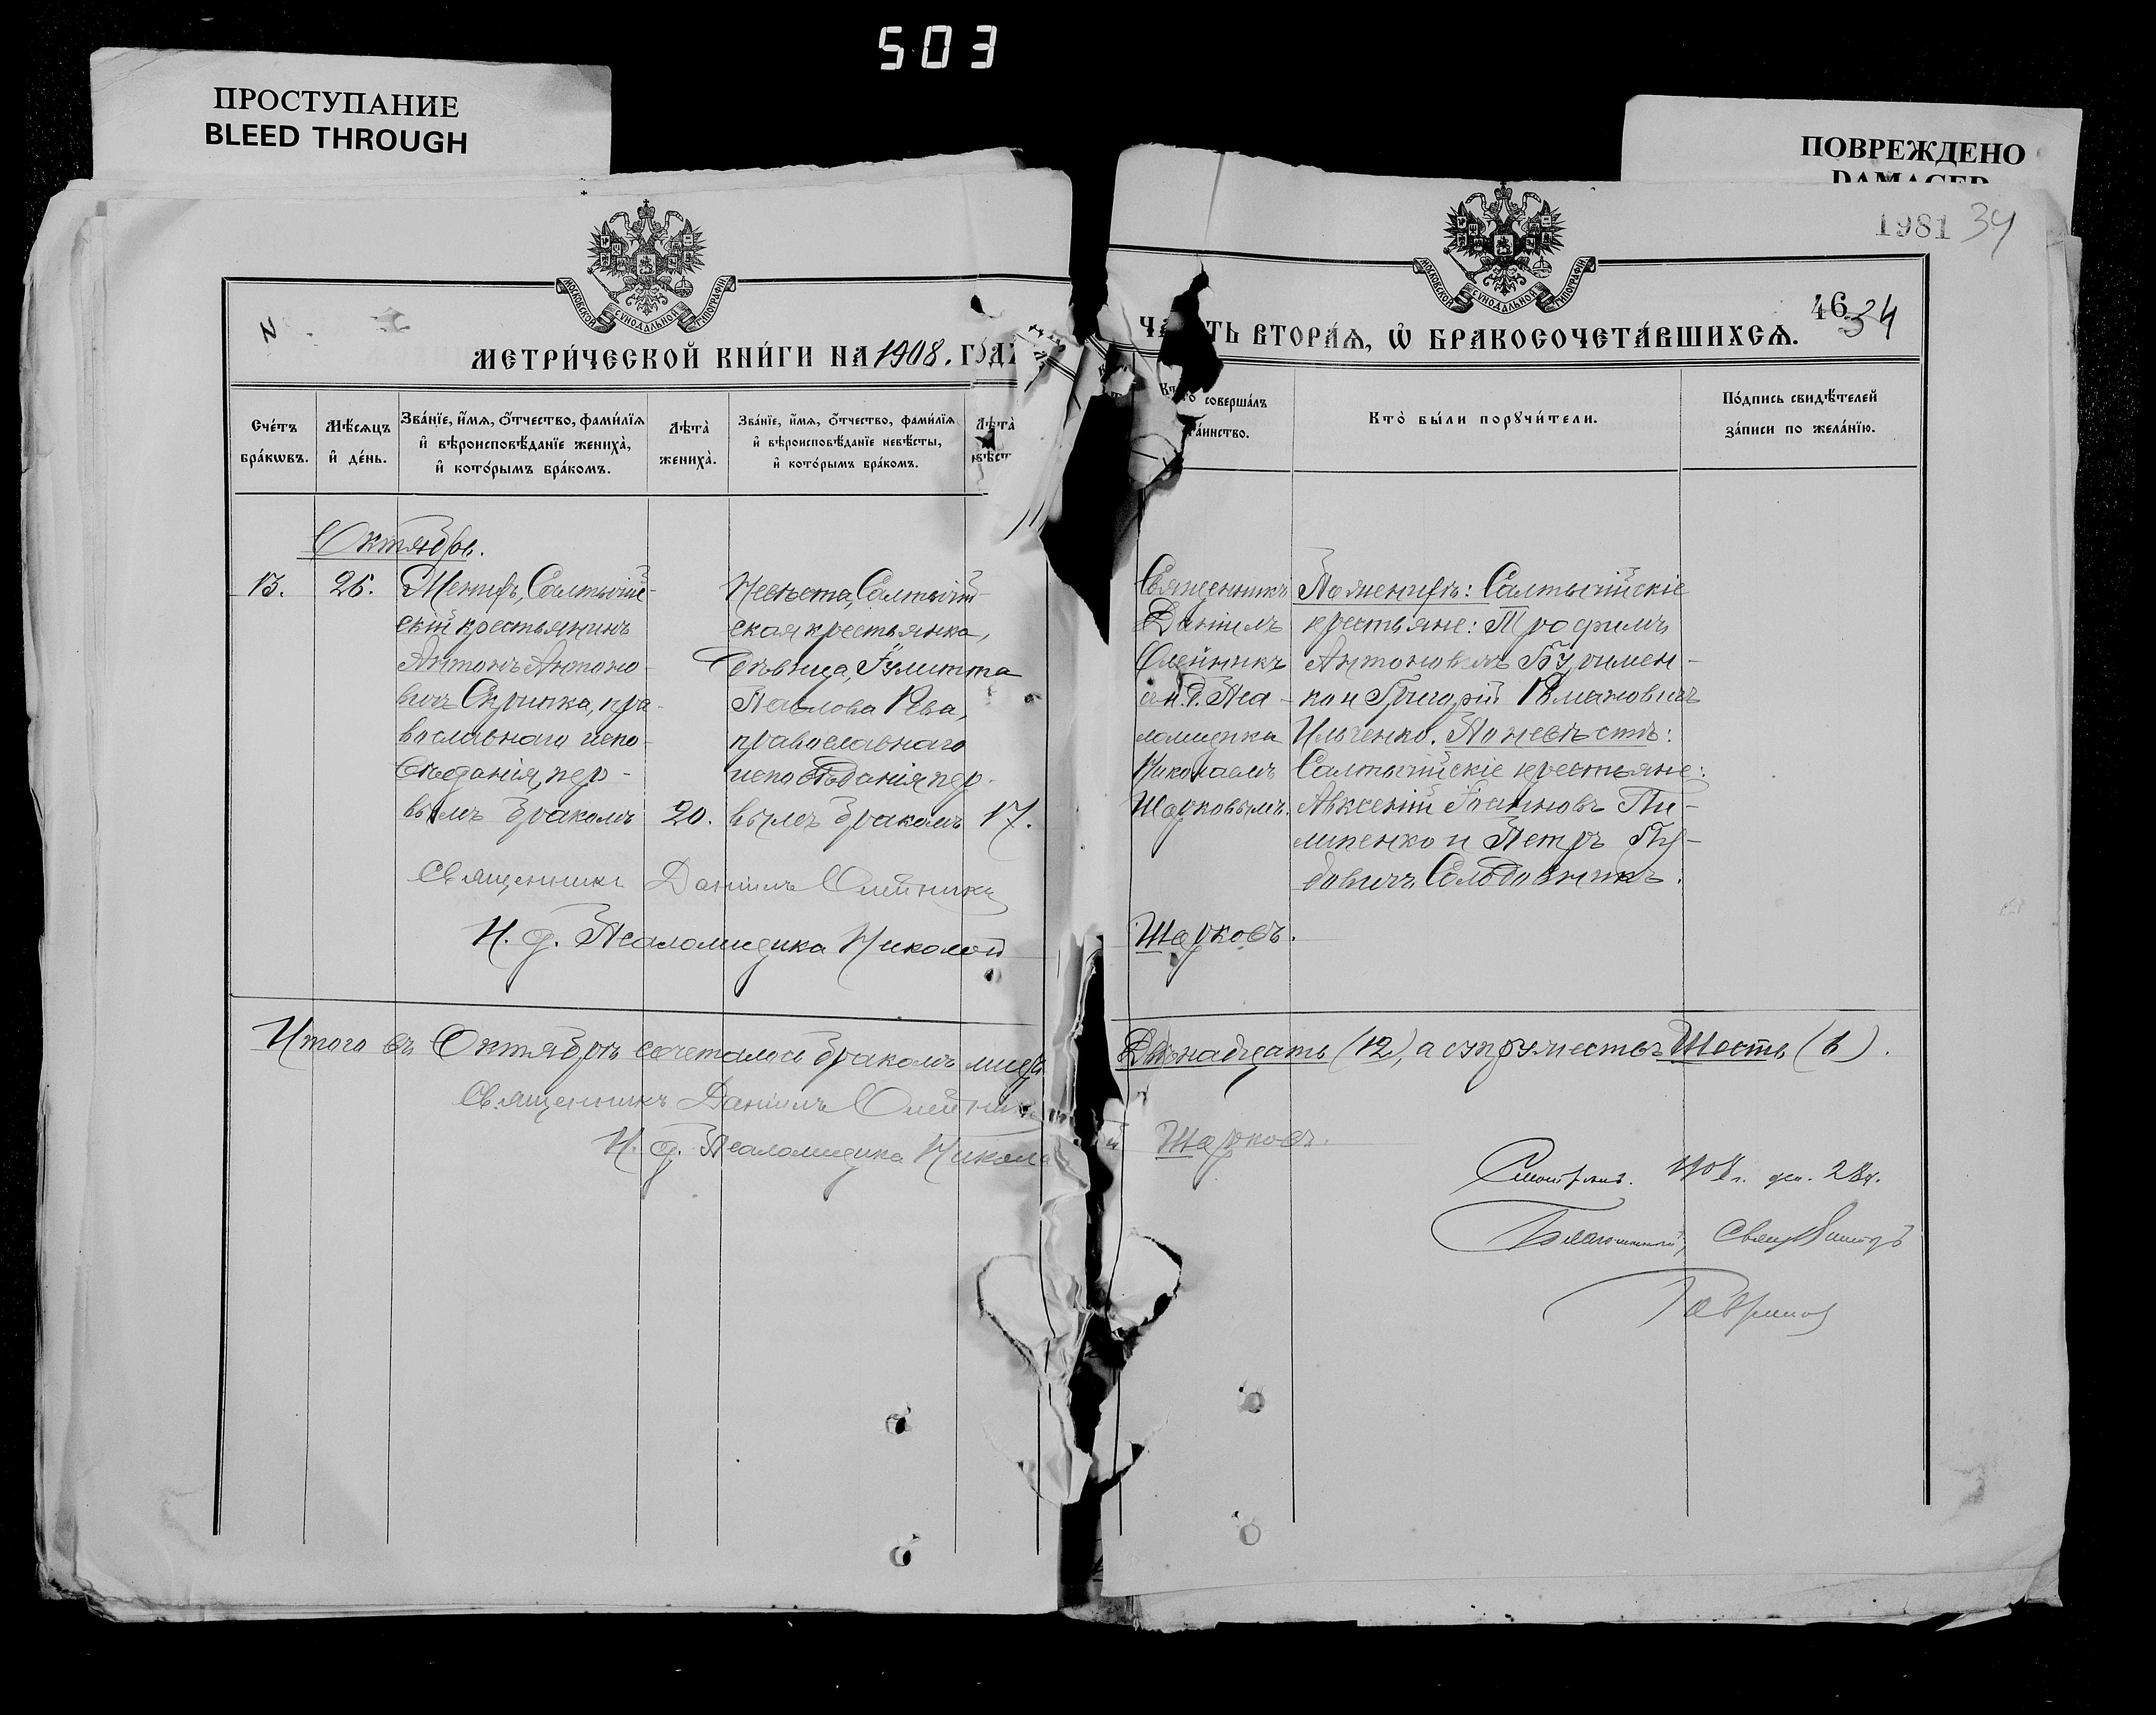 503
ПРОСТУПАНИЕ
BLEED THROUGH
ПОВРЕЖДЕНО
1981 34
МОСКОВСКОЙ СѴНОДАЛЬНОЙ ТИПОГРАФІИ
МОСКОВСКОЙ СѴНОДАЛЬНОЙ ТИПОГРАФІИ
46 34
МЕТРИ́ЧЕСКОЙ КНИ́ГИ НА 1908.
ТЬ ВТОРА́Я, Ѡ҆ БРАКОСОЧЕТА́ВШИХСЯ.
Сче́тъ
бра́кѡвъ.
Мѣ́сяцъ
и҆ де́нь.
Зва́нїе, и҆́мя, ѻ҆́тчество, фами́лїя
и҆ вѣроисповѣ́данїе жениха̀,
и҆ кото́рымъ бра́комъ.
Лѣта̀
жениха̀.
Зва́нїе, и҆́мя, ѻ҆́тчество, фами́лїя
и҆ вѣроисповѣ́данїе невѣ́сты,
и҆ кото́рымъ бра́комъ.
Лѣта̀
соверша́лъ
та́инство.
Кто̀ бы́ли порꙋчи́тели.
По́дпись свидѣ́телей
за́писи по жела́нїю.
Октябрь.
13.
26.
Женихъ, Салтычій-
скій крестьянинъ
Антонъ Антоно-
вичъ Скрипка, пра-
вославнаго испо-
вѣданія, пер-
вымъ бракомъ
20.
Невѣста, Салтычій-
ская крестьянка,
дѣвица, Іулитта
Павлова Рева,
православнаго
исповѣданія, пер-
вымъ бракомъ
17.
Священникъ
Даніилъ
Олейникъ
и. д. Пса-
ломщика
Николаемъ
Шарковымъ.
По женихѣ: Салтычійскіе
крестьяне: Трофимъ
Антоновичъ Буримен-
ко и Григорій Романовичъ
Ильченко. По невѣстѣ:
Салтычійскіе крестьяне:
Авксентій Іоанновъ Пи-
липенко и Петръ
Солодовникъ.
Священникъ Даніилъ Олейникъ
И. д. Псаломщика Николай Шарковъ.
Итого въ Октябрѣ сочеталось бракомъ лицъ Двѣнадцать (12), а супружествъ Шесть (6).
Священникъ Даніилъ Олейникъ
И. д. Псаломщика Николай Шарковъ.
Смотрѣлъ. 1908 г. дек. 28 д.
Благочинный, Священникъ